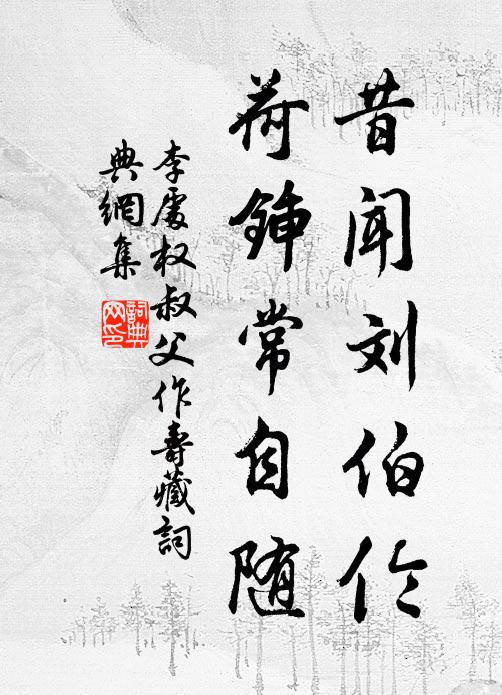 昔闻刘伯伶
荷锸常自随
李处权叔父作寿藏词
典網集
詞典網印